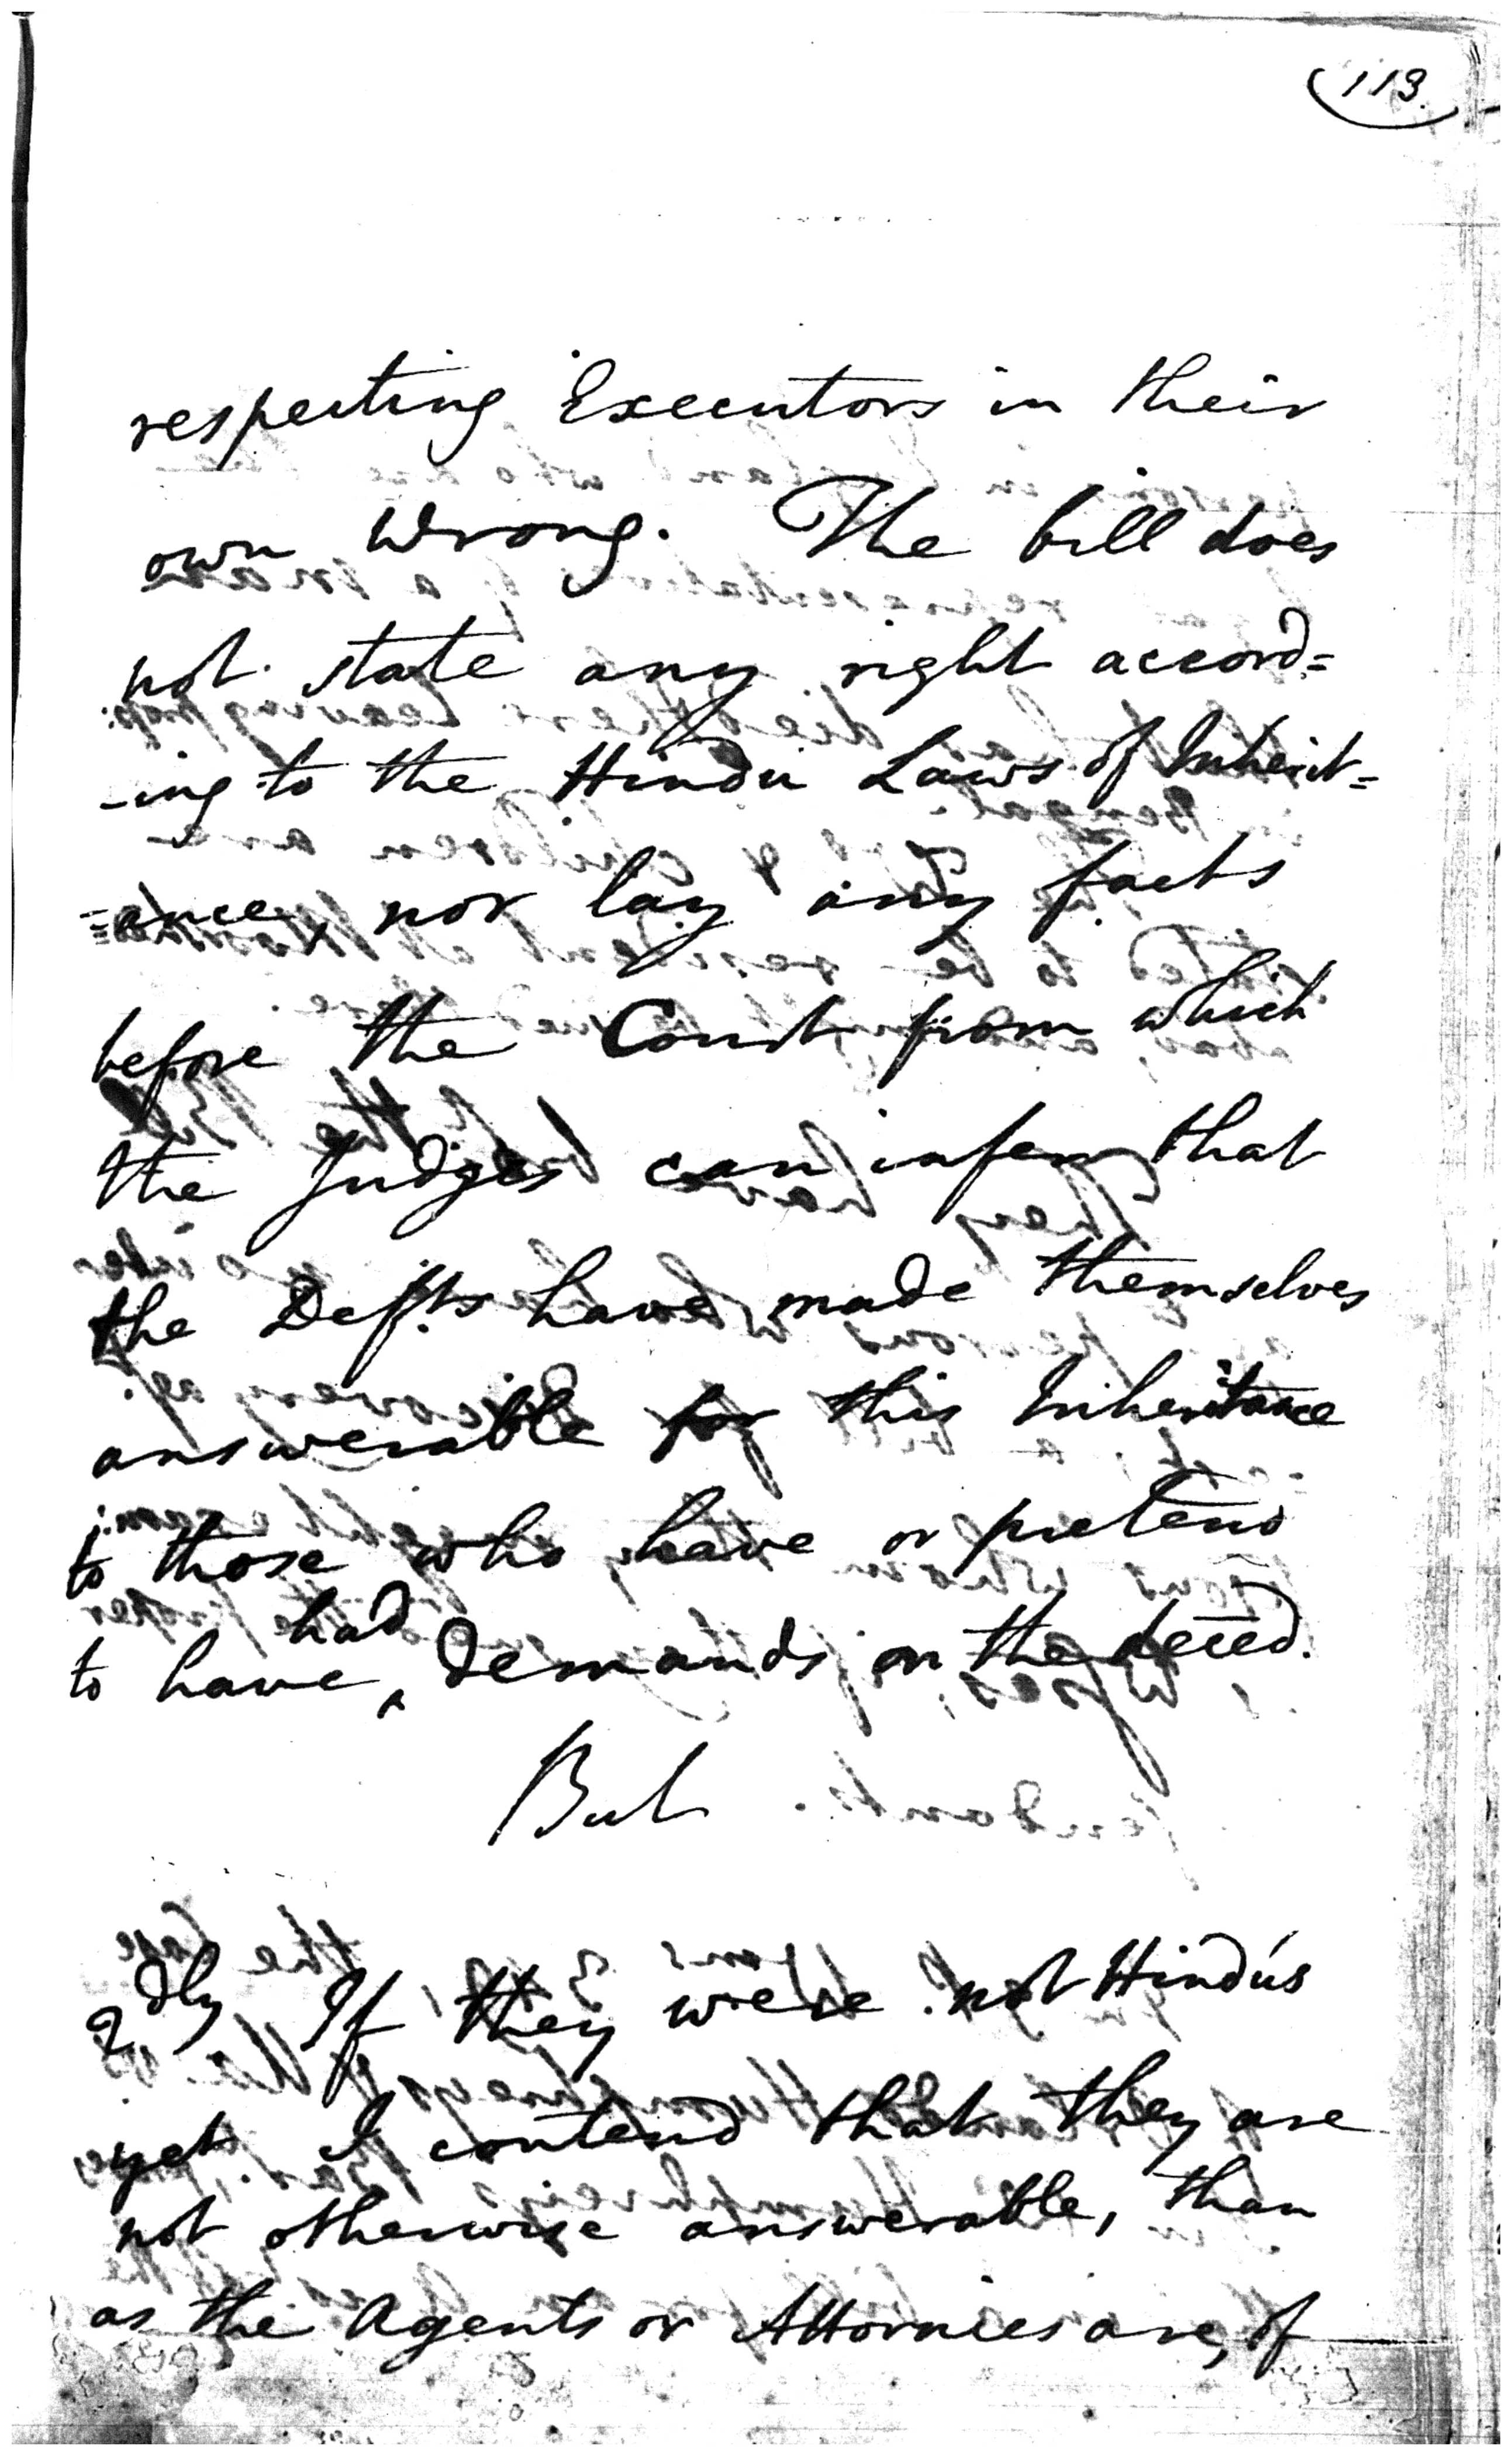 113.
respecting Executors in their
own Wrong. The bill does
not state any right accord=
-ing to the Hindu Laws of Inherit=
=ance, nor lay any facts
before the Court from which
the Judges can infer that
the Defts have made themselves
answerable for this Inheritance
to those who have or pretend
to have had demands on the deced.
But
2dly If they were not Hindús
yet I contend that they are
not otherwise answerable, than
as the Agents or Attornies are, of